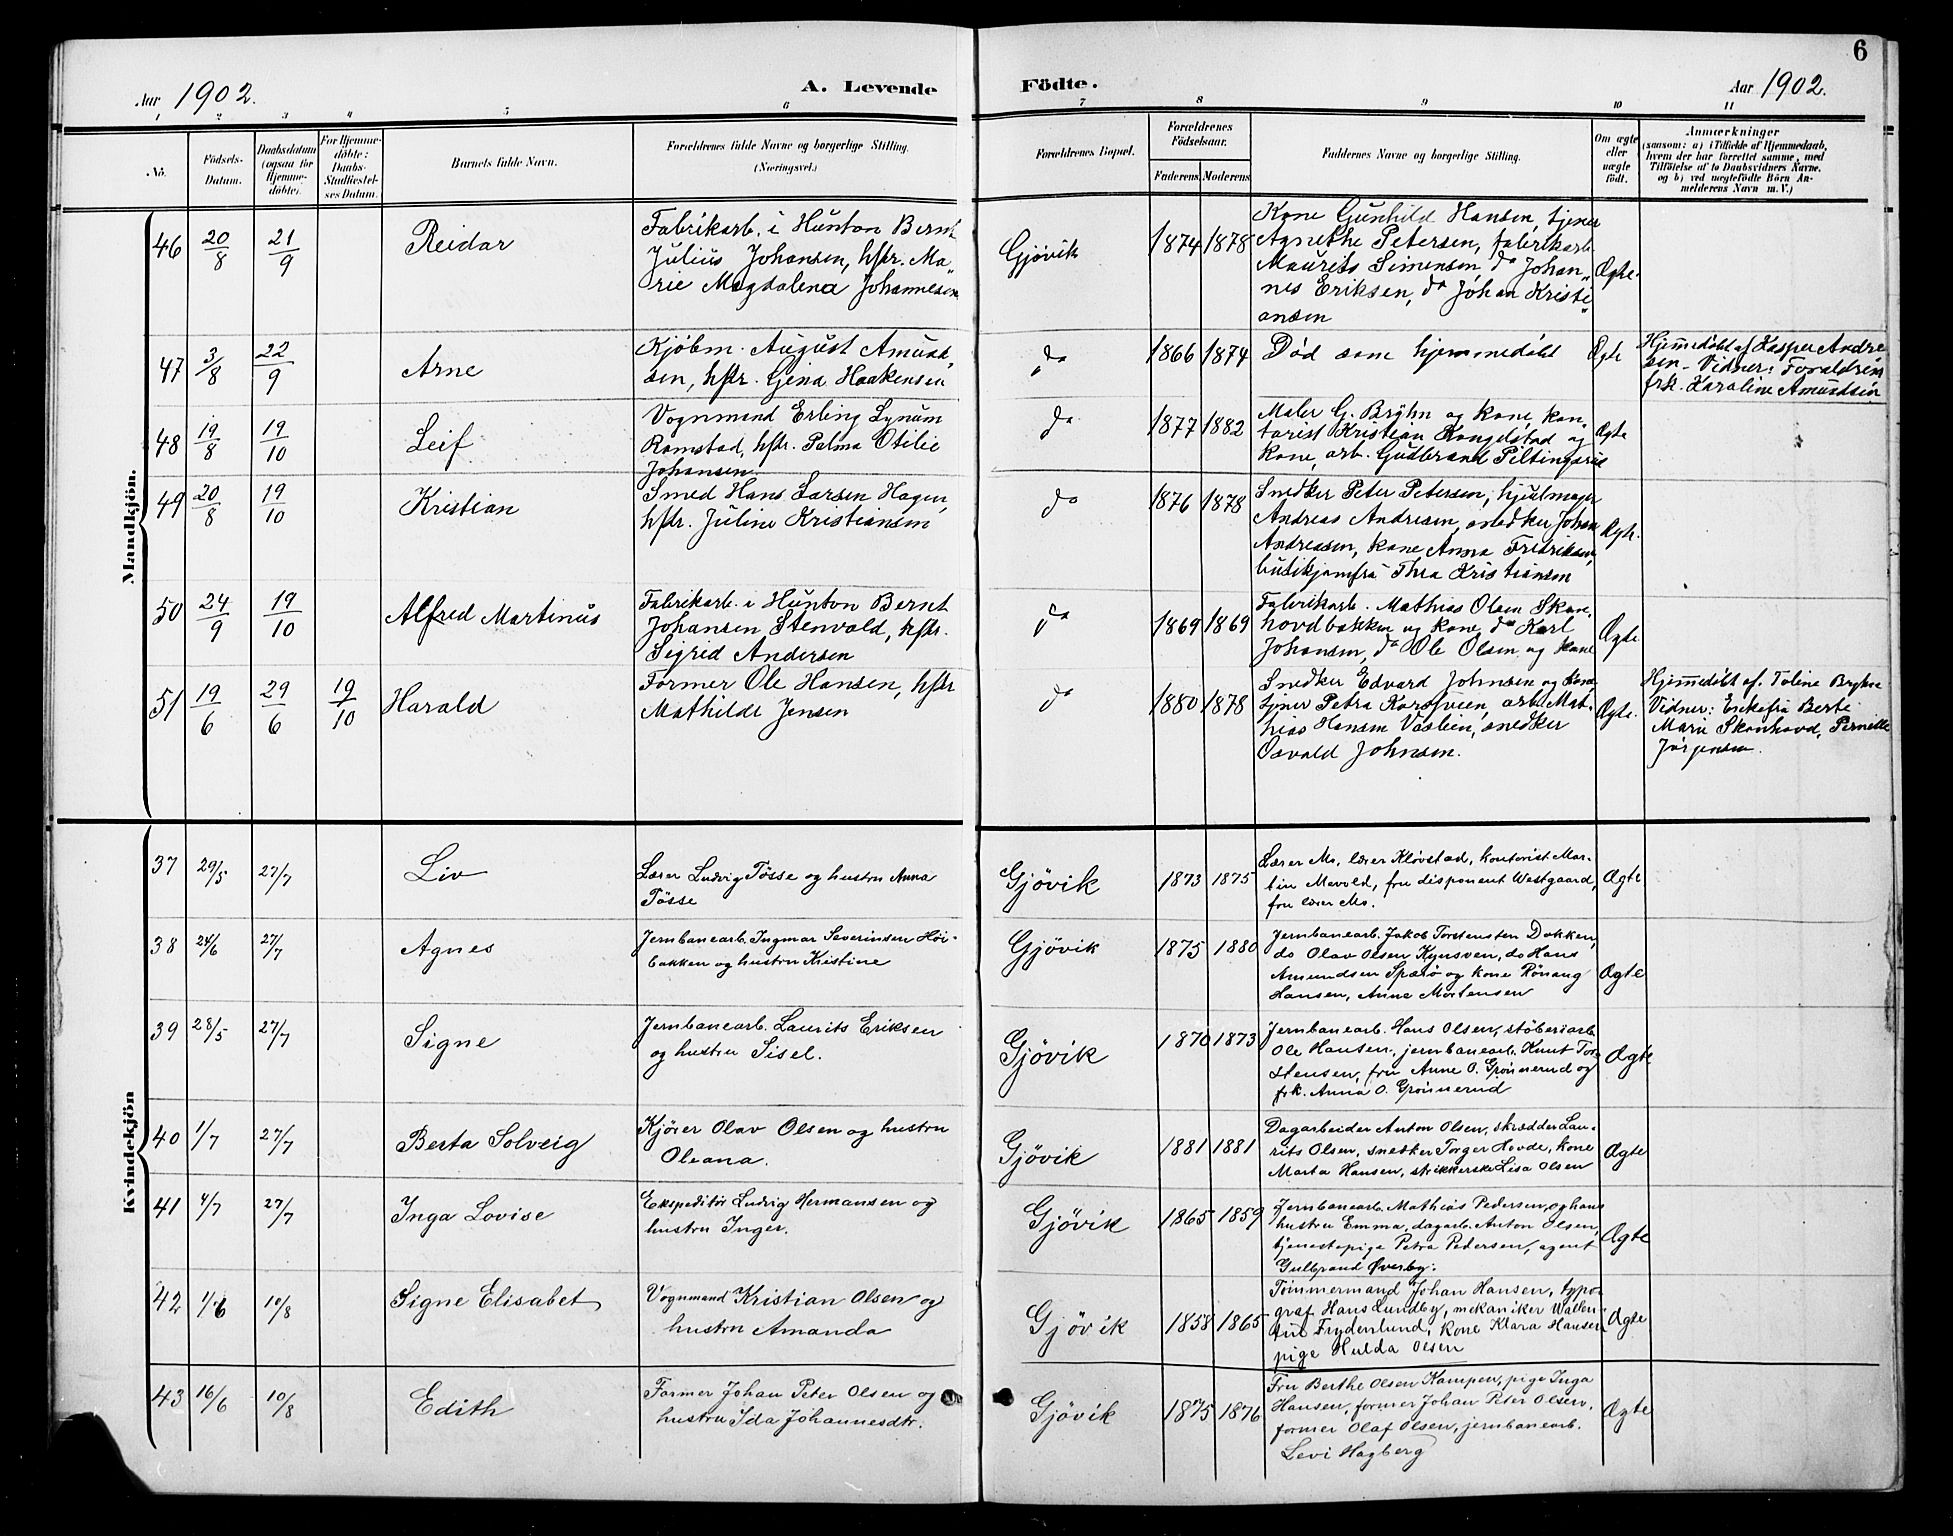 6
Aar 1902.
A. Levende
Födte.
Aar 1902.
1 2 3 4 5 6 7 8 9 10 11
No.
Födsels-
Datum.
Daabsdatum
(ogsaa för
Hjemme-
döbte).
For Hjemme-
döbte:
Daabs-
Stadfæstel-
ses Datum.
Barnets fulde Navn.
Forældrenes fulde Navne og borgerlige Stilling.
(Næringsvei.)
Forældrenes Bopæl.
Forældrenes
Födselsaar.
Faderens. Moderens.
Faddernes Navne og borgerlige Stilling.
Om ægte
eller
uægte
födt.
Anmærkninger
(saasom: a) i Tilfælde af Hjemmedaab,
hvem der har forrettet samme, med
Tilföielse af to Daabsvidners Navne,
og b) ved uægtefödte Börn An-
melderens Navn m. V.)
Mandkjön.
46 20/8 21/9 Reidar
Fabrikarb. i Hunton Bernt
Julius Johansen, hstr. Ma-
rie Magdalena Johannesen
Gjøvik 1874 1878
Kone Gunhild Hansen, tjener
Agnethe Petersen, fabrikarb.
Maurits Simensen, do Johan-
nes Eriksen, do Johan Kristi-
ansen
Ægte
47 3/8 22/9 Arne
Kjøbm. August Amund-
sen, hstr. Gina Haakensen
do 1866 1874
Død som hjemmedøbt
Ægte
Hjemmedøbt af Kasper Andre-
sen - Vidner: Forældrene
frk. Karoline Amundsen
48 19/8 19/10 Leif
Vognmand Erling Lynum
Ramstad, hstr. Palma Otilie
Johansen
do 1877 1882
Maler G. Bryhn og kone, kon-
torist Kristian Kongelstad og
kone, arb. Gudbrand
Ægte
49 20/8 19/10 Kristian
Smed Hans Larsen Hagen,
hstr. Juline Kristiansen
do 1876 1878
Snedker Peter Petersen, hjulmager
Andreas Andresen, snedker Johan
Andreasen, kone Anna Fredriksen,
butikjomfru Thea Kristiansen
Ægte.
50 24/9 19/10 Alfred Martinus
Fabrikarb. i Hunton Bernt
Johansen Stenvold, hstr.
Sigrid Andersen
do 1869 1869
Fabrikarb. Mathias Olsen Skon-
hovdbakken og kone, do Karl
Johansen, do Ole Olsen og kone
Ægte
51 19/6 29/6 19/10 Harald
Former Ole Hansen, hstr
Mathilde Jensen
do 1880 1878
Snedker Edvard Johnsen og kone
tjener Petra Korsveien, arb. Mat-
hias Hansen Vaslien, snedker
Osvald Johnsen.
Ægte.
Hjemmedøbt af. Toline Bryhn
Vidner: Enkefru Berte
Marie Skonhovd, Pernille
Jørgensen.
Kvindekjön
37 29/5 27/7 Liv
Lærer Ludvig Tösse og hustru Anna
Tösse
Gjövik 1873 1875
Lærer Mo, lærer Kløvstad, kontorist Mar-
tin Mevold, fru disponent Westgaard,
fru lærer Mo.
Ægte
38 24/6 27/7 Agnes
Jernbanearb. Ingmar Severinsen Höi-
bakken og hustru Kristine
Gjövik 1875 1880
Jernbanearb. Jakob Torstensten Dokken,
do Olav Olsen Kynsven, do Hans
Amundsen Sparö og kone Rönaug
Hansen, Anne Mortensen
Ægte
39 28/5 27/7 Signe
Jernbanearb. Laurits Eriksen
og hustru Sisel.
Gjövik 1870 1873
Jernbanearb. Hans Olsen, støberiarb.
Ole Hansen, jernbanearb. Knut Tor-
stensen, fru Anne O. Grönnerud og
frk. Anna O. Grönnerud
Ægte
40 1/7 27/7 Berta Solveig
Kjörer Olav Olsen og hustru
Oleana.
Gjövik 1881 1881
Dagarbeider Anton Olsen, skrædder Lau-
rits Olsen, snedker Torger Hovde, kone
Marta Hansen, strikkerske Lisa Olsen
Ægte
41 4/7 27/7 Inga Lovise
Ekspeditör Ludvig Hermansen og
hustru Inger.
Gjövik 1865 1859
Jernbanearb. Mathias Pedersen og hans
hustru Emma, dagarb. Anton Olsen,
tjenestepige Petra Pedersen, agent
Gulbrand Øverby.
Ægte
42 1/6 10/8 Signe Elisabet
Vognmand Kristian Olsen og
hustru Amanda
Gjövik 1858 1865
Tömmermand Johan Hansen, typo-
graf Hans Lundby, mekaniker Wallen-
tin Frydenlund, kone Klara Hansen
pige Hulda Olsen
Ægte
43 16/6 10/8 Edith
Former Johan Peter Olsen og
hustru Ida Johannesdtr.
Gjövik 1875 1876
Fru Berthe Olsen Kampen, pige Inga
Hansen, former Johan Peter Olsen,
former Olaf Olsen, jernbanearb.
Levi Hagberg
Ægte